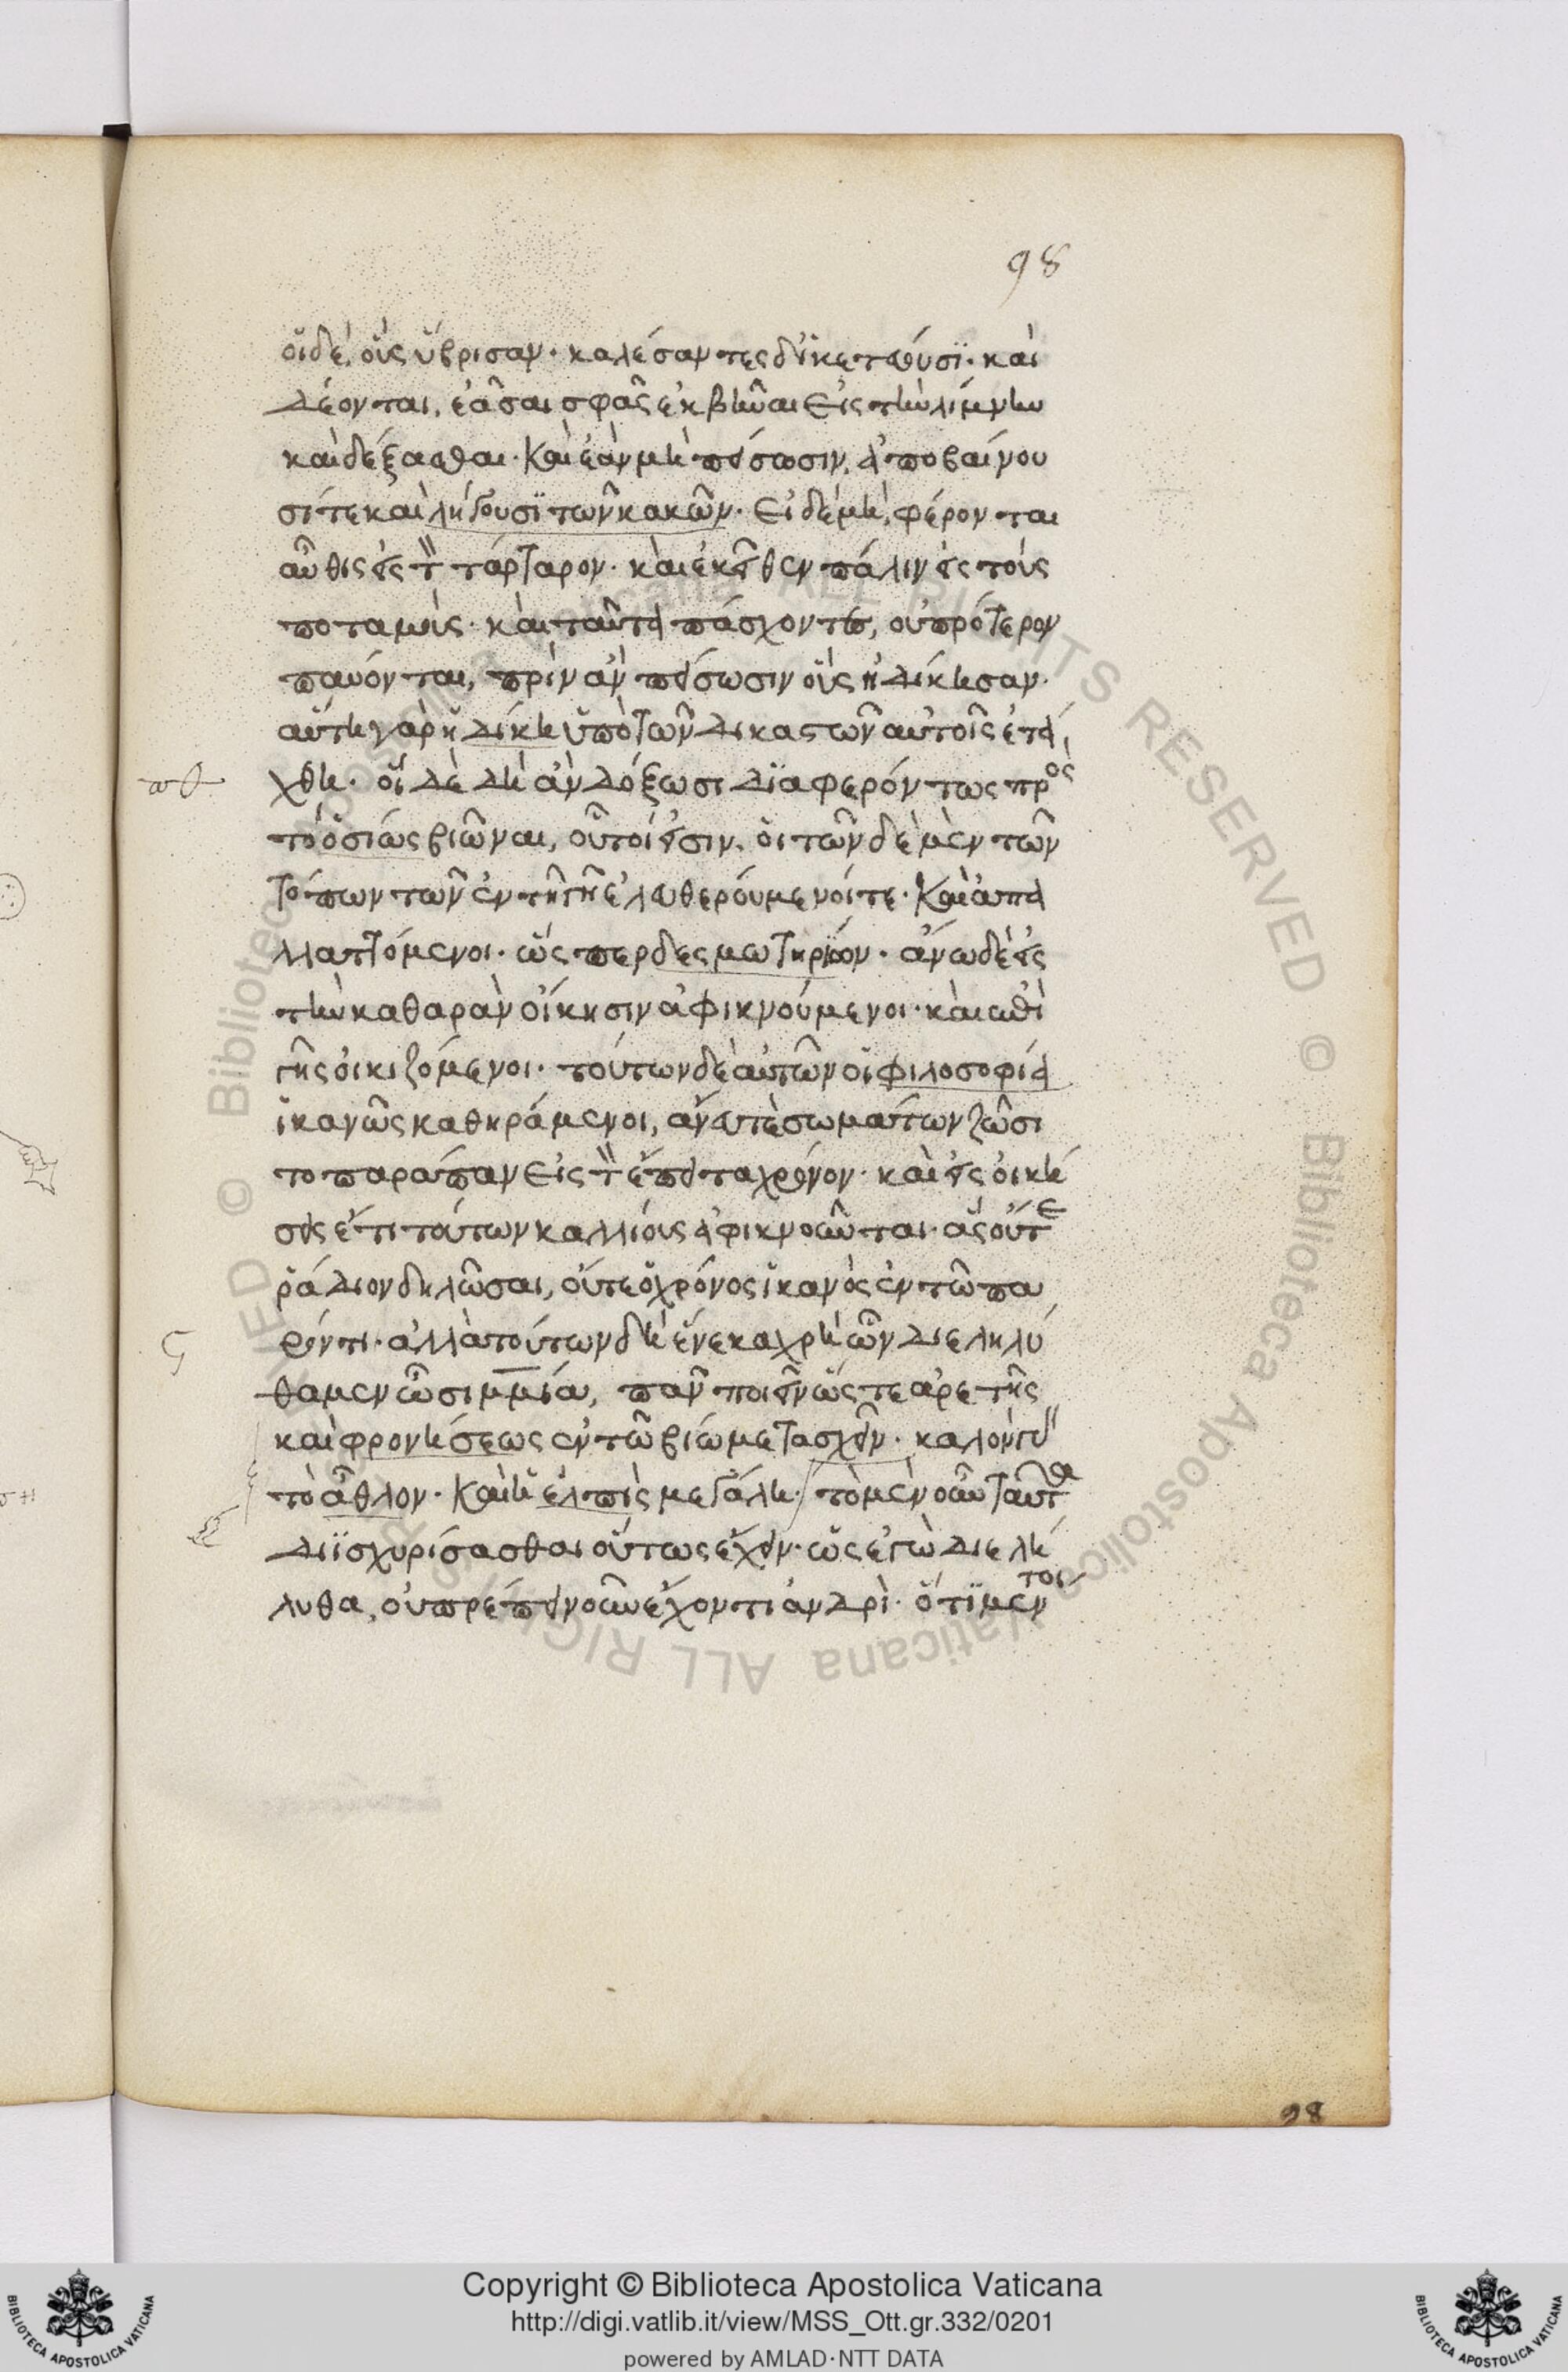 98
οἱ δὲ, οὓς ὕβρισαν· καλέσαντες δ' ἱκετεύουσϊ· καὶ
δέονται, ἐᾶσαι σφᾶς ἐκβῆναι εἰς τὴν λίμνην
καὶ δέξασθαι· καὶ ἐὰν μὲν πείσωσιν, ἀποβαίνου
σί τε καὶ λήγουσϊ τῶν κακῶν· εἰ δὲ μὴ, φέρονται
αὖθις εἰς τὸν τάρταρον· καὶ ἐκεῖθεν πάλιν εἰς τοὺς
ποταμούς· καὶ ταῦτα πάσχοντες, οὐ πρότερον
παύονται, πρὶν ἂν πείσωσιν οὓς ἠδίκησαν·
αὕτη γὰρ ἡ δίκη ὑπὸ τῶν δικαστῶν αὐτοῖς ἐτά
χθη· οἳ δὲ δὴ ἂν δόξωσι δϊαφερόντως πρὸς
τὸ ὁσίως βιῶναι, οὗτοί εἰσιν, οἱ τῶνδε μὲν τῶν
τόπων τῶν ἐν τῆ γῆ ἐλευθερούμενοί τε· καὶ ἀπα
λλαττόμενοι· ὥσπερ δεσμωτηρίων· ἄνω δὲ εἰς
τὴν καθαρὰν οἴκησιν ἀφικνούμενοι· καὶ ἐπὶ
γῆς οἰκιζόμενοι· τούτων δὲ αὐτῶν οἱ φιλοσοφία
ἱκανῶς καθηράμενοι, ἄνευ τε σωμάτων ζῶσι
το παράπαν εἰς τὸν ἔπειτα χρόνον· καὶ εἰς οἰκή
σεις ἔτι τούτων καλλίους ἀφικνοῦνται· ἃς οὔτε
ῥάδιον δηλῶσαι, οὔτε ὁ χρόνος ἱκανὸς ἐν τῶ πα
ρόντι· ἀλλὰ τούτων δὴ ἕνεκα χρὴ ὧν διεληλύ
θαμεν ὦ σιμμία, πᾶν ποιεῖν ὥστε ἀρετῆς
καὶ φρονήσεως ἐν τῶ βίω μετασχεῖν· καλὸν γὰρ
τὸ ἆθλον· καὶ ἡ ἐλπὶς μεγάλη· τὸ μὲν οὖν ταῦτα
διϊσχυρίσασθαι οὕτως ἔχειν· ὡς ἐγὼ διελή
λυθα, οὐ πρέπει νοῦν ἔχοντι ἀνδρὶ· ὅτϊ μέντοι
98
Copyright © Biblioteca Apostolica Vaticana
http://digi.vatlib.it/view/MSS_Ott.gr.332/0201
powered by AMLAD·NTT DATA